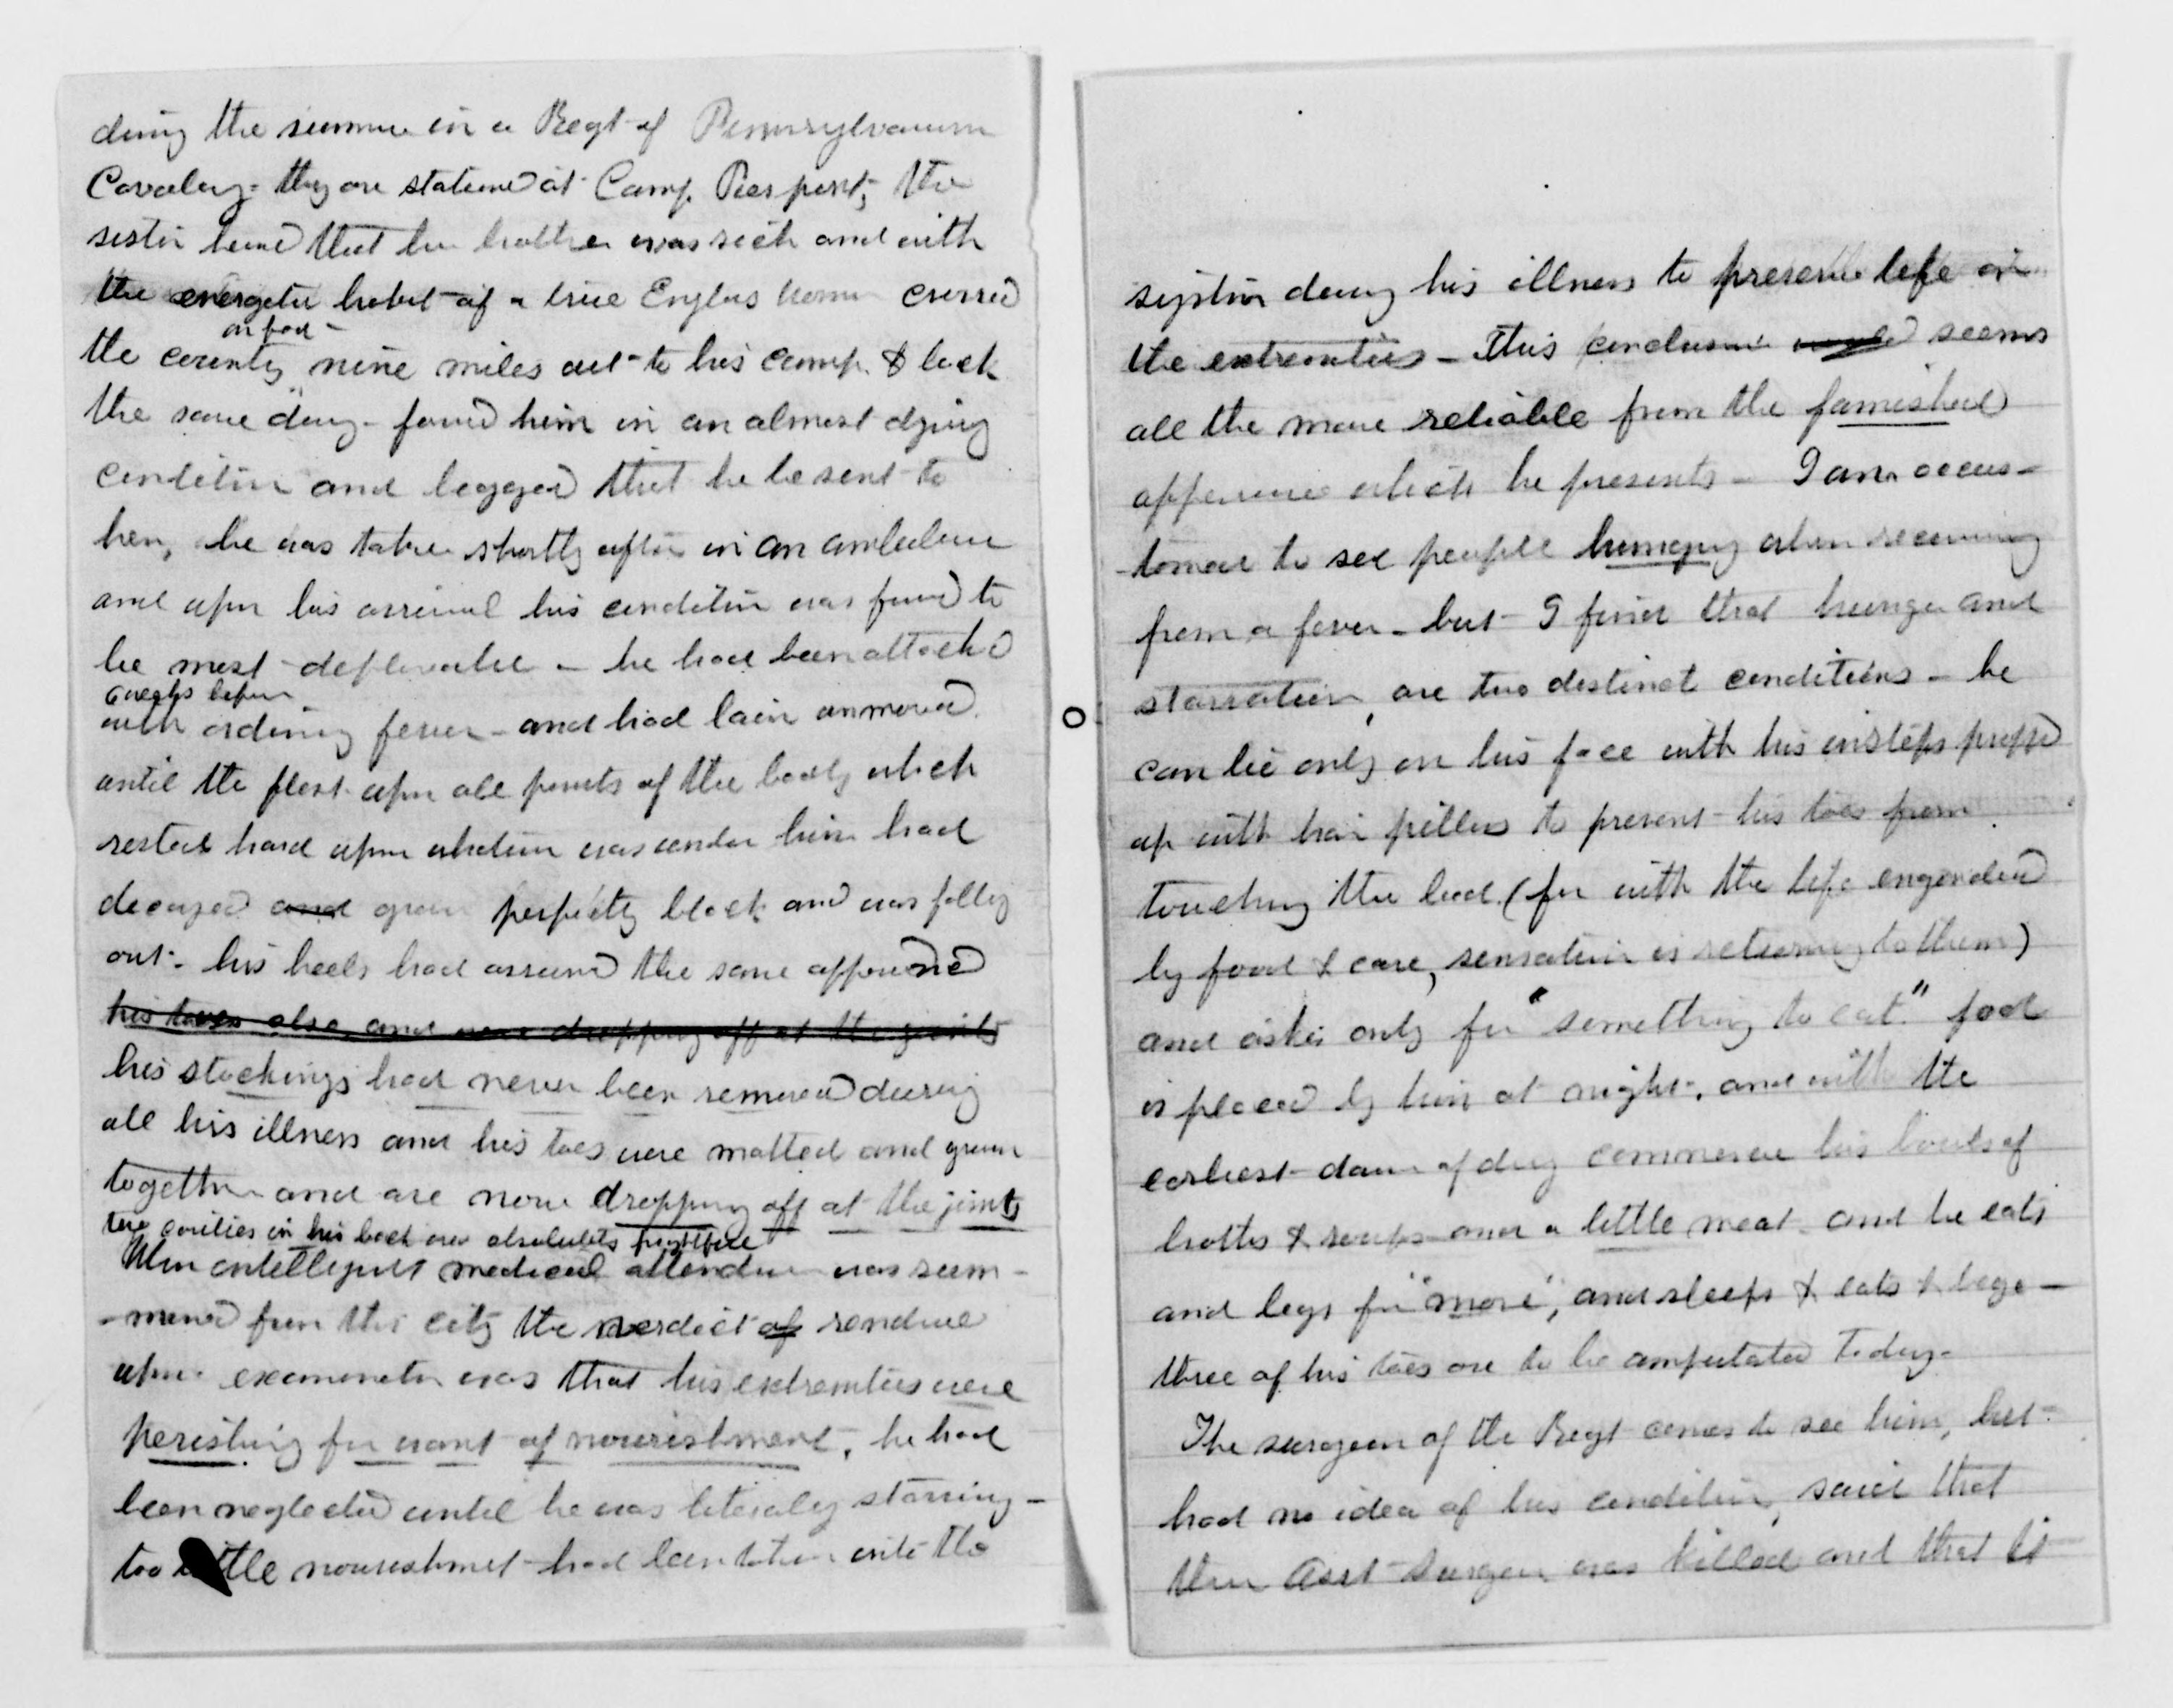 during the summer in a Regt of Pennsylvania
Cavalry - they are stationed at Camp Pierpont, the
sister learned that her brother was sick and with
the energetic habit of a true English woman crossed
on foot -
the country nine miles out to his camp & back
the same day - found him in an almost dying
condition and begged that he be sent to
her, he was taken shortly after in an ambulance
and upon his arrival his condition was found to
be most deplorable - he had been attacked
6 weeks before
with ordinary fever - and had lain unmoved
until the flesh upon all points of the body which
rested hard upon whatever was under him had
decayed and grown perfectly black and was falling
out - his heels had assumed the same appearance
his toes also and were dropping off at the joints
his stockings had never been removed during
all his illness and his toes were matted and grown
together and are now dropping off at the joints
the cavities in his back are absolutely frightful
When intelligent medical attendance was sum-
-moned from this city the verdict of rendered
upon examination was that his extremities were
perishing for want of nourishment, he had
been neglected until he was literally starving -
too little nourishment had been taken into the
system during his illness to preserve life in
the extremities - This conclusion seems
all the more reliable from the famished
appearance which he presents - I am accus-
-tomed to see people hungry when recovering
from a fever - but I find that hunger and
starvation are two distinct conditions - he
can lie only on his face with his insteps propped
up with hair pillows to prevent his toes from
touching the bed (for with the life engendered
by food & care, sensation is returning to them)
and asks only for "something to eat." food
is placed by him at night, and with the
earliest dawn of day commence his bowls of
broths & soups and a little meat and he eats
and begs for "more", and sleeps & eats & begs -
three of his toes are to be amputated today -
The surgeon of the Regt comes to see him, but
had no idea of his condition, said that
their asst surgeon was killed and that it